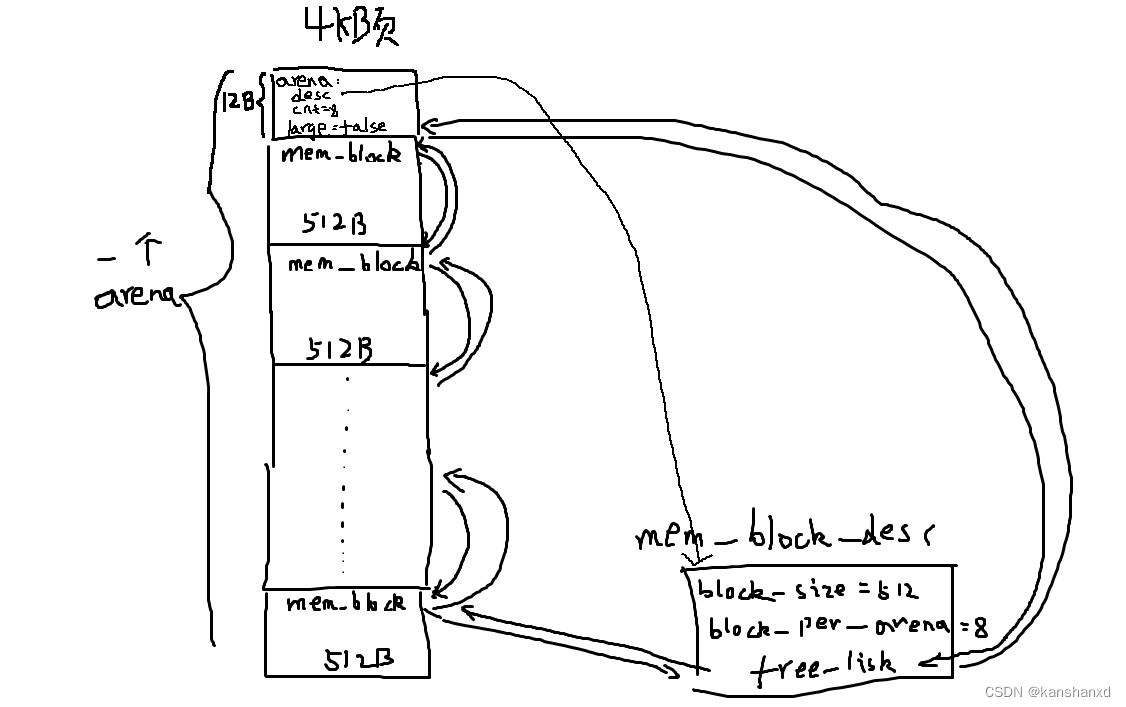 4kB页
arena:
desc
cnt=8
large=false
12B
mem_block
512B
mem_block
512B
一个
arena
mem_block
512B
mem_block_desc
block_size=512
block_per_arena=8
free_lisk
CSDN @kanshanxd